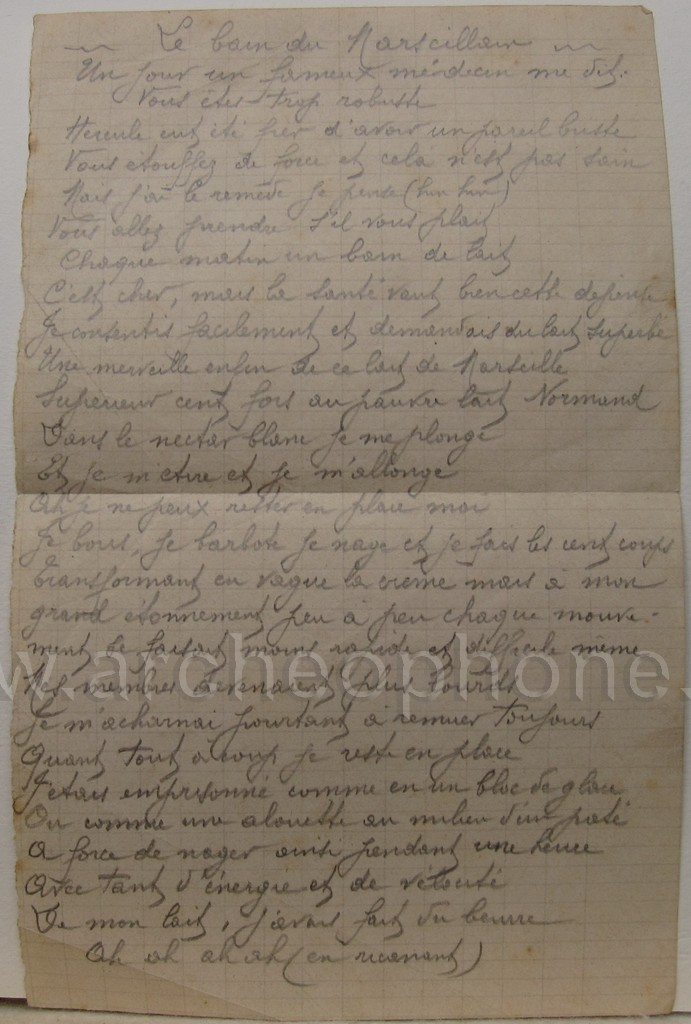 Le bain du Marseillais
Un jour un fameux médecin me dit:
Vous êtes trop robuste
Hercule eut été fier d'avoir un pareil buste
Vous étouffez de force et cela n'est pas sain
Mais j'ai le remède je pense (hun hun)
Vous allez prendre s'il vous plait
Chaque matin un bain de lait
C'est cher, mais la santé vaut bien cette dépense
Je consentis facilement et demandais du lait superbe
Une merveille enfin de ce lait de Marseille
Supérieur cent fois au pauvre lait Normand
Dans le nectar blanc je me plonge
Et je m'étire et je m'allonge
Ah je ne peux rester en place moi
Je bous, je barbote je nage et je fais les cent coups
Transformant en vague la crème mais à mon
grand étonnement peu à peu chaque mouve-
ment se faisait moins rapide et difficile même
www.archeophone.
Mes membres devenaient plus lourds
Je m'acharnai pourtant à remuer toujours
Quant tout à coup je reste en place
J'étais emprisonné comme en un bloc de glace
Ou comme une alouette au milieu d'un paté
A force de nager ainsi pendant une heure
Avec tant d'énergie et de vélouté
De mon lait, j'avais fait du beurre
Ah ah ah ah (en ricanant)